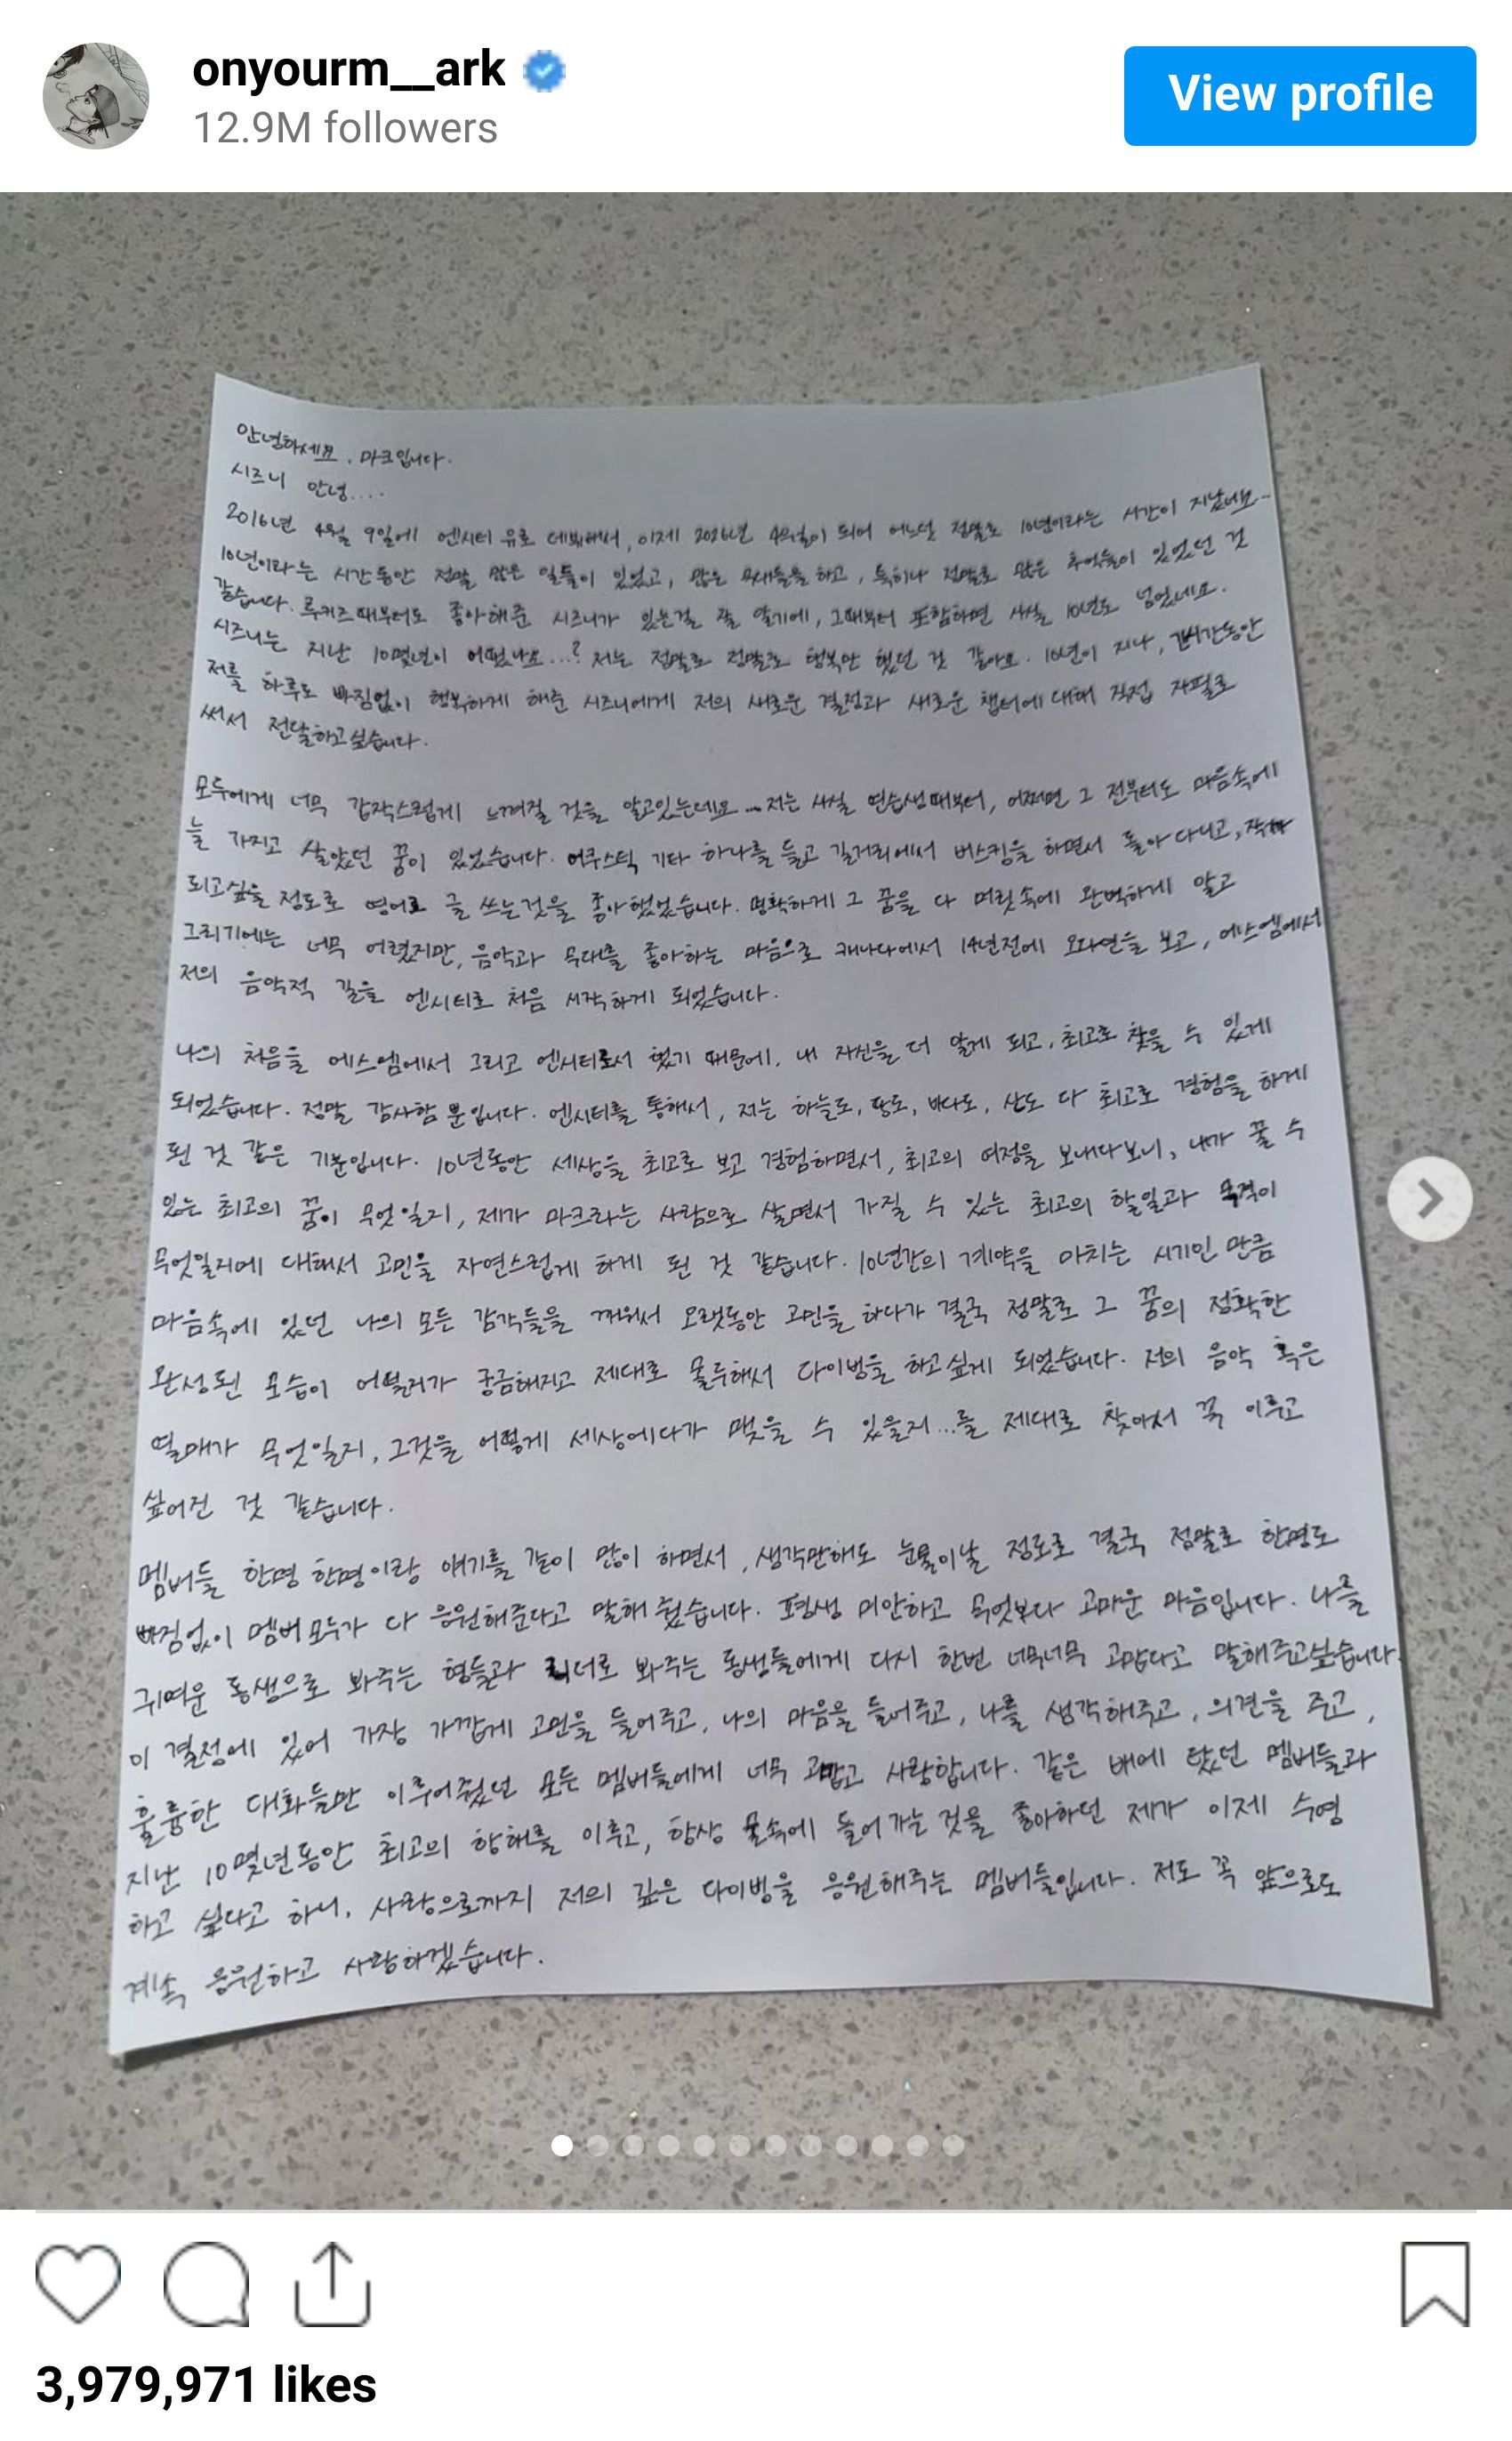 onyourm__ark
12.9M followers
View profile
안녕하세요. 마크입니다.
시즈니 안녕....
2016년 4월 9일에 엔시티 유로 데뷔해서, 이제 2026년 4월이 되어 어느덧 정말로 10년이라는 시간이 지났네요..
10년이라는 시간동안 정말 많은 일들이 있었고, 많은 무대들을 하고, 특히나 정말로 많은 추억들이 있었던 것
같습니다. 루키즈때부터도 좋아해준 시즈니가 있는걸 잘 알기에, 그때부터 포함하면 사실 10년도 넘었네요.
시즈니는 지난 10몇년이 어땠나요...? 저는 정말로 정말로 행복만 했던 것 같아요. 10년이 지나, 긴시간동안
저를 하루도 빠짐없이 행복하게 해준 시즈니에게 저의 새로운 결정과 새로운 챕터에 대해 직접 자필로
써서 전달하고싶습니다.
모두에게 너무 갑작스럽게 느껴질 것을 알고있는데요... 저는 사실 연습생때부터, 어쩌면 그 전부터도 마음속에
늘 가지고 살았던 꿈이 있었습니다. 어쿠스틱 기타 하나를 들고 길거리에서 버스킹을 하면서 돌아다니고, 작가
되고싶을 정도로 영어로 글 쓰는것을 좋아했었습니다. 명확하게 그 꿈을 다 머릿속에 완벽하게 알고
그리기에는 너무 어렸지만, 음악과 무대를 좋아하는 마음으로 캐나다에서 14년전에 오디션을 보고, 에스엠에서
저의 음악적 길을 엔시티로 처음 시작하게 되었습니다.
나의 처음을 에스엠에서 그리고 엔시티로서 했기 때문에, 내 자신을 더 알게 되고, 최고로 찾을 수 있게
되었습니다. 정말 감사할 뿐입니다. 엔시티를 통해서, 저는 하늘도, 땅도, 바다도, 산도 다 최고로 경험을 하게
된 것 같은 기분입니다. 10년동안 세상을 최고로 보고 경험하면서, 최고의 여정을 보내다보니, 내가 꿀 수
있는 최고의 꿈이 무엇일지, 제가 마크라는 사람으로 살면서 가질 수 있는 최고의 할일과 목적이
무엇일지에 대해서 고민을 자연스럽게 하게 된 것 같습니다. 10년간의 계약을 마치는 시기인 만큼
마음속에 있던 나의 모든 감각들을 깨워서 오랫동안 고민을 하다가 결국 정말로 그 꿈의 정확한
완성된 모습이 어떨런가 궁금해지고 제대로 몰두해서 다이빙을 하고싶게 되었습니다. 저의 음악 혹은
열매가 무엇일지, 그것을 어떻게 세상에다가 맺을 수 있을지...를 제대로 찾아서 꼭 이루고
싶어진 것 같습니다.
멤버들 한명 한명이랑 얘기를 같이 많이 하면서, 생각만해도 눈물이날 정도로 결국 정말로 한명도
빠짐없이 멤버 모두가 다 응원해준다고 말해 줬습니다. 평생 미안하고 무엇보다 고마운 마음입니다. 나를
귀여운 동생으로 봐주는 형들과 리더로 봐주는 동생들에게 다시 한번 너무너무 고맙다고 말해주고싶습니다.
이 결정에 있어 가장 가깝게 고민을 들어주고, 나의 마음을 들어주고, 나를 생각해주고, 의견을 주고,
훌륭한 대화들만 이루어줬던 모든 멤버들에게 너무 고맙고 사랑합니다. 같은 배에 탔던 멤버들과
지난 10몇년동안 최고의 항해를 이루고, 항상 물속에 들어가는 것을 좋아하던 제가 이제 수영
하고 싶다고 하니, 사랑으로까지 저의 깊은 다이빙을 응원해주는 멤버들입니다. 저도 꼭 앞으로도
계속 응원하고 사랑하겠습니다.
3,979,971 likes